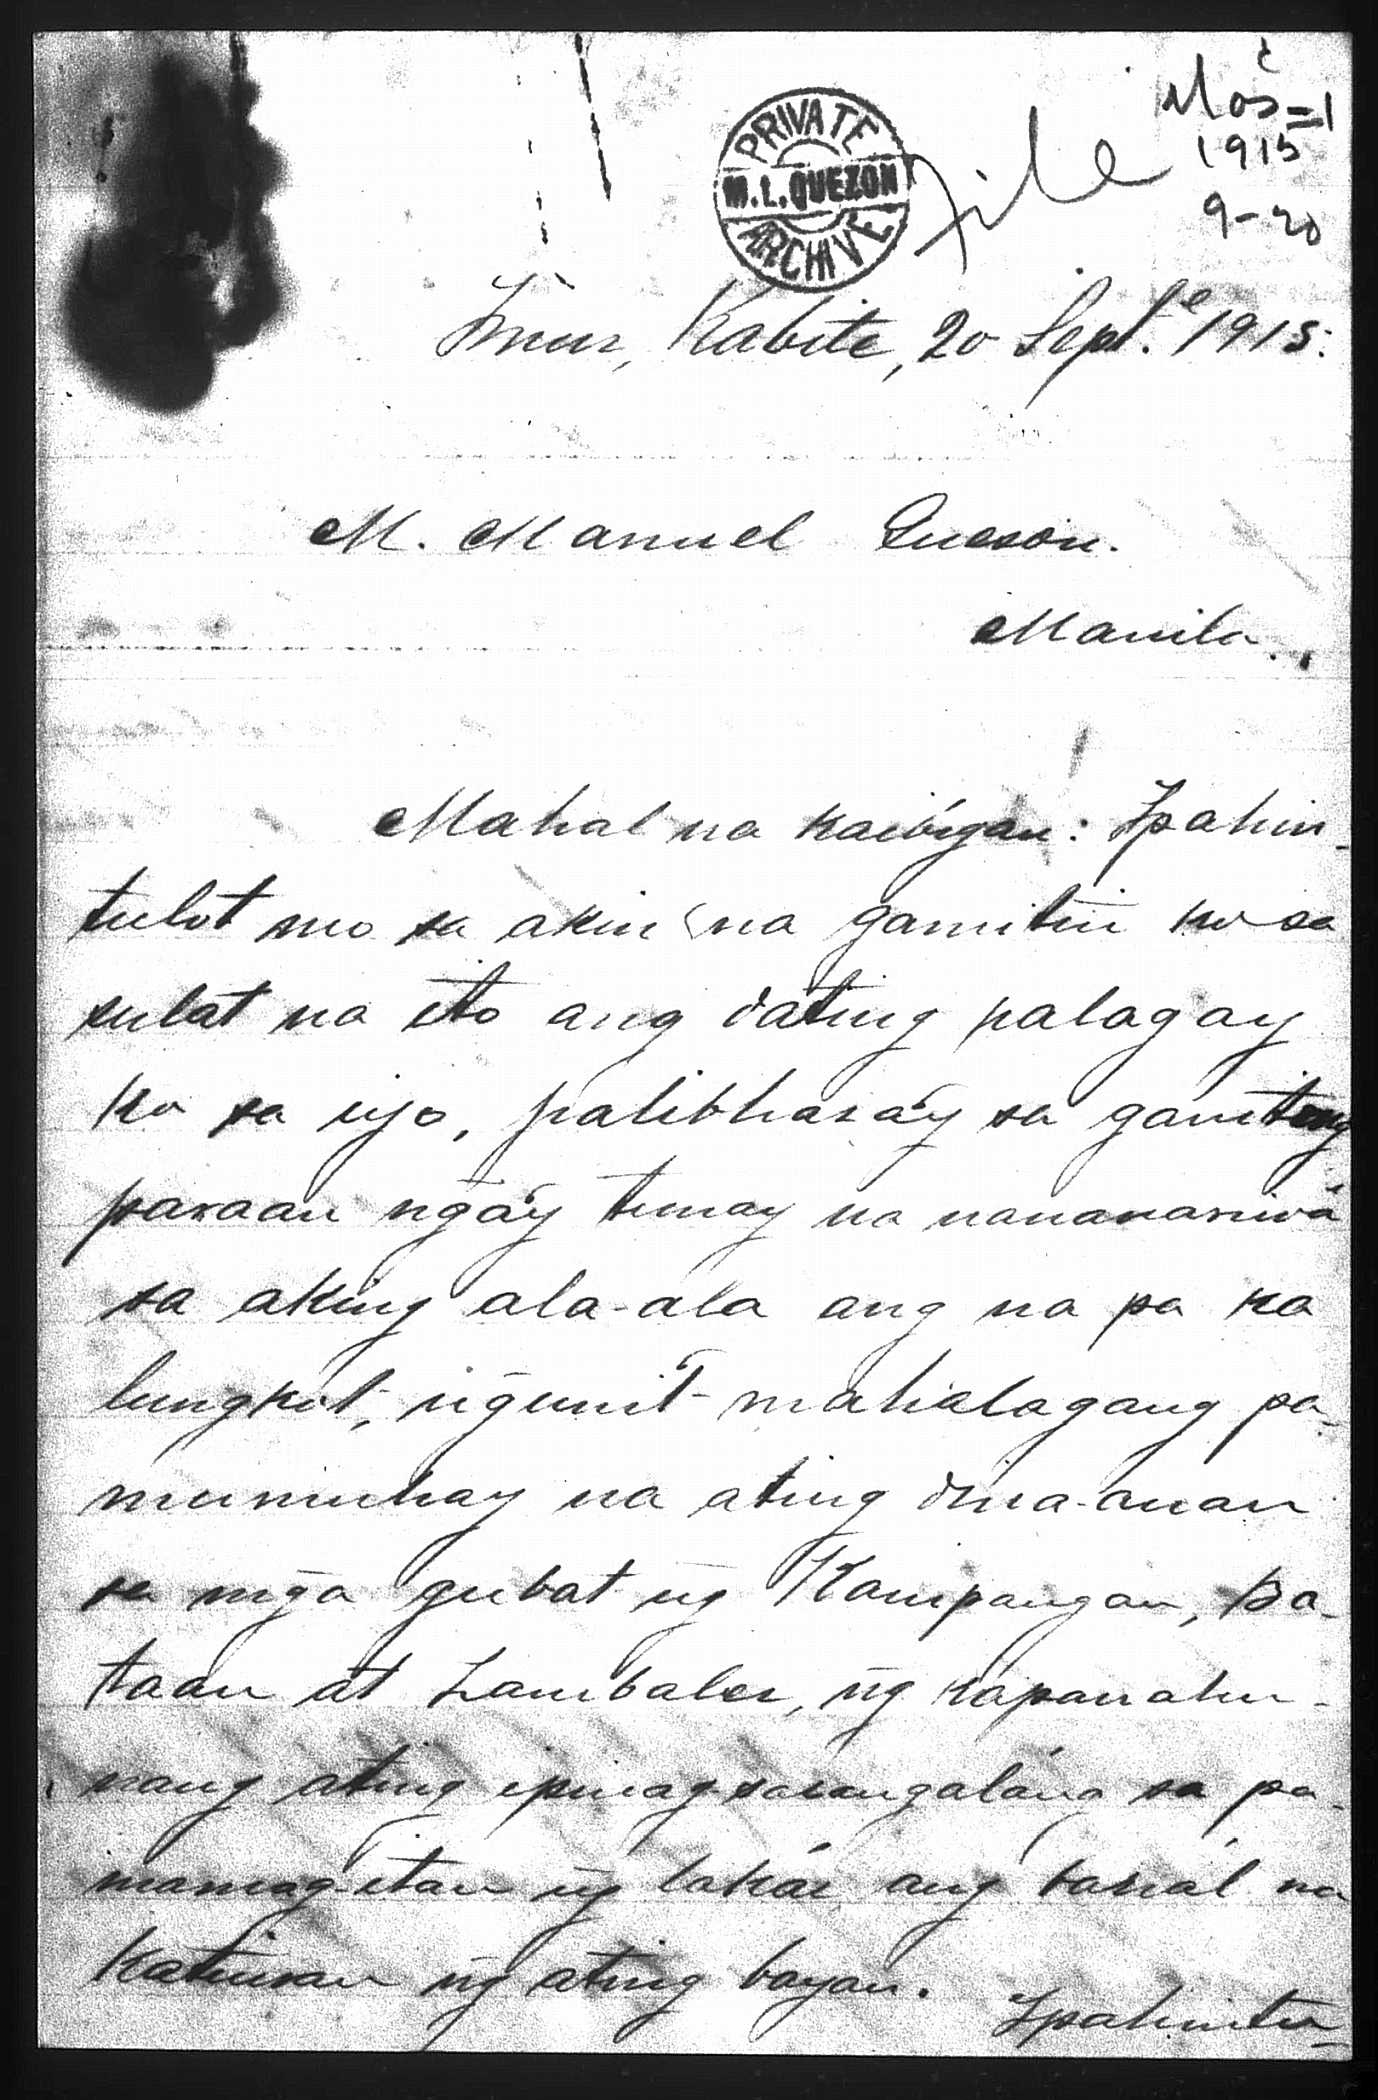 PRIVATE
M.L.QUEZON
ARCHIVE
File
1915
9-20
Imus, Kabite, 20 Septe. 1915.
M. Manuel Queson.
Manila.
Mahal na kaibigan: Ipahin-
tulot mo sa akin na gamitin ko sa
sulat na ito ang dating palagay
ko sa iyo, palibhasa'y sa ganitong
paraan ng̃a'y tunay na nananariwá
sa aking ala-ala ang na pa ka
lungkot, ng̃uni't mahalagang pa-
mumuhay na ating dina-anan
sa mg̃a gubat ng̃ Kampangan, Ba-
taan at Zambales, ng̃ kapanahu-
nang ating ipinag-sasangaláng sa pa-
mamag-itan ng̃ lakás ang banal na
katuiran ng̃ ating bayan.
Ipahintu-